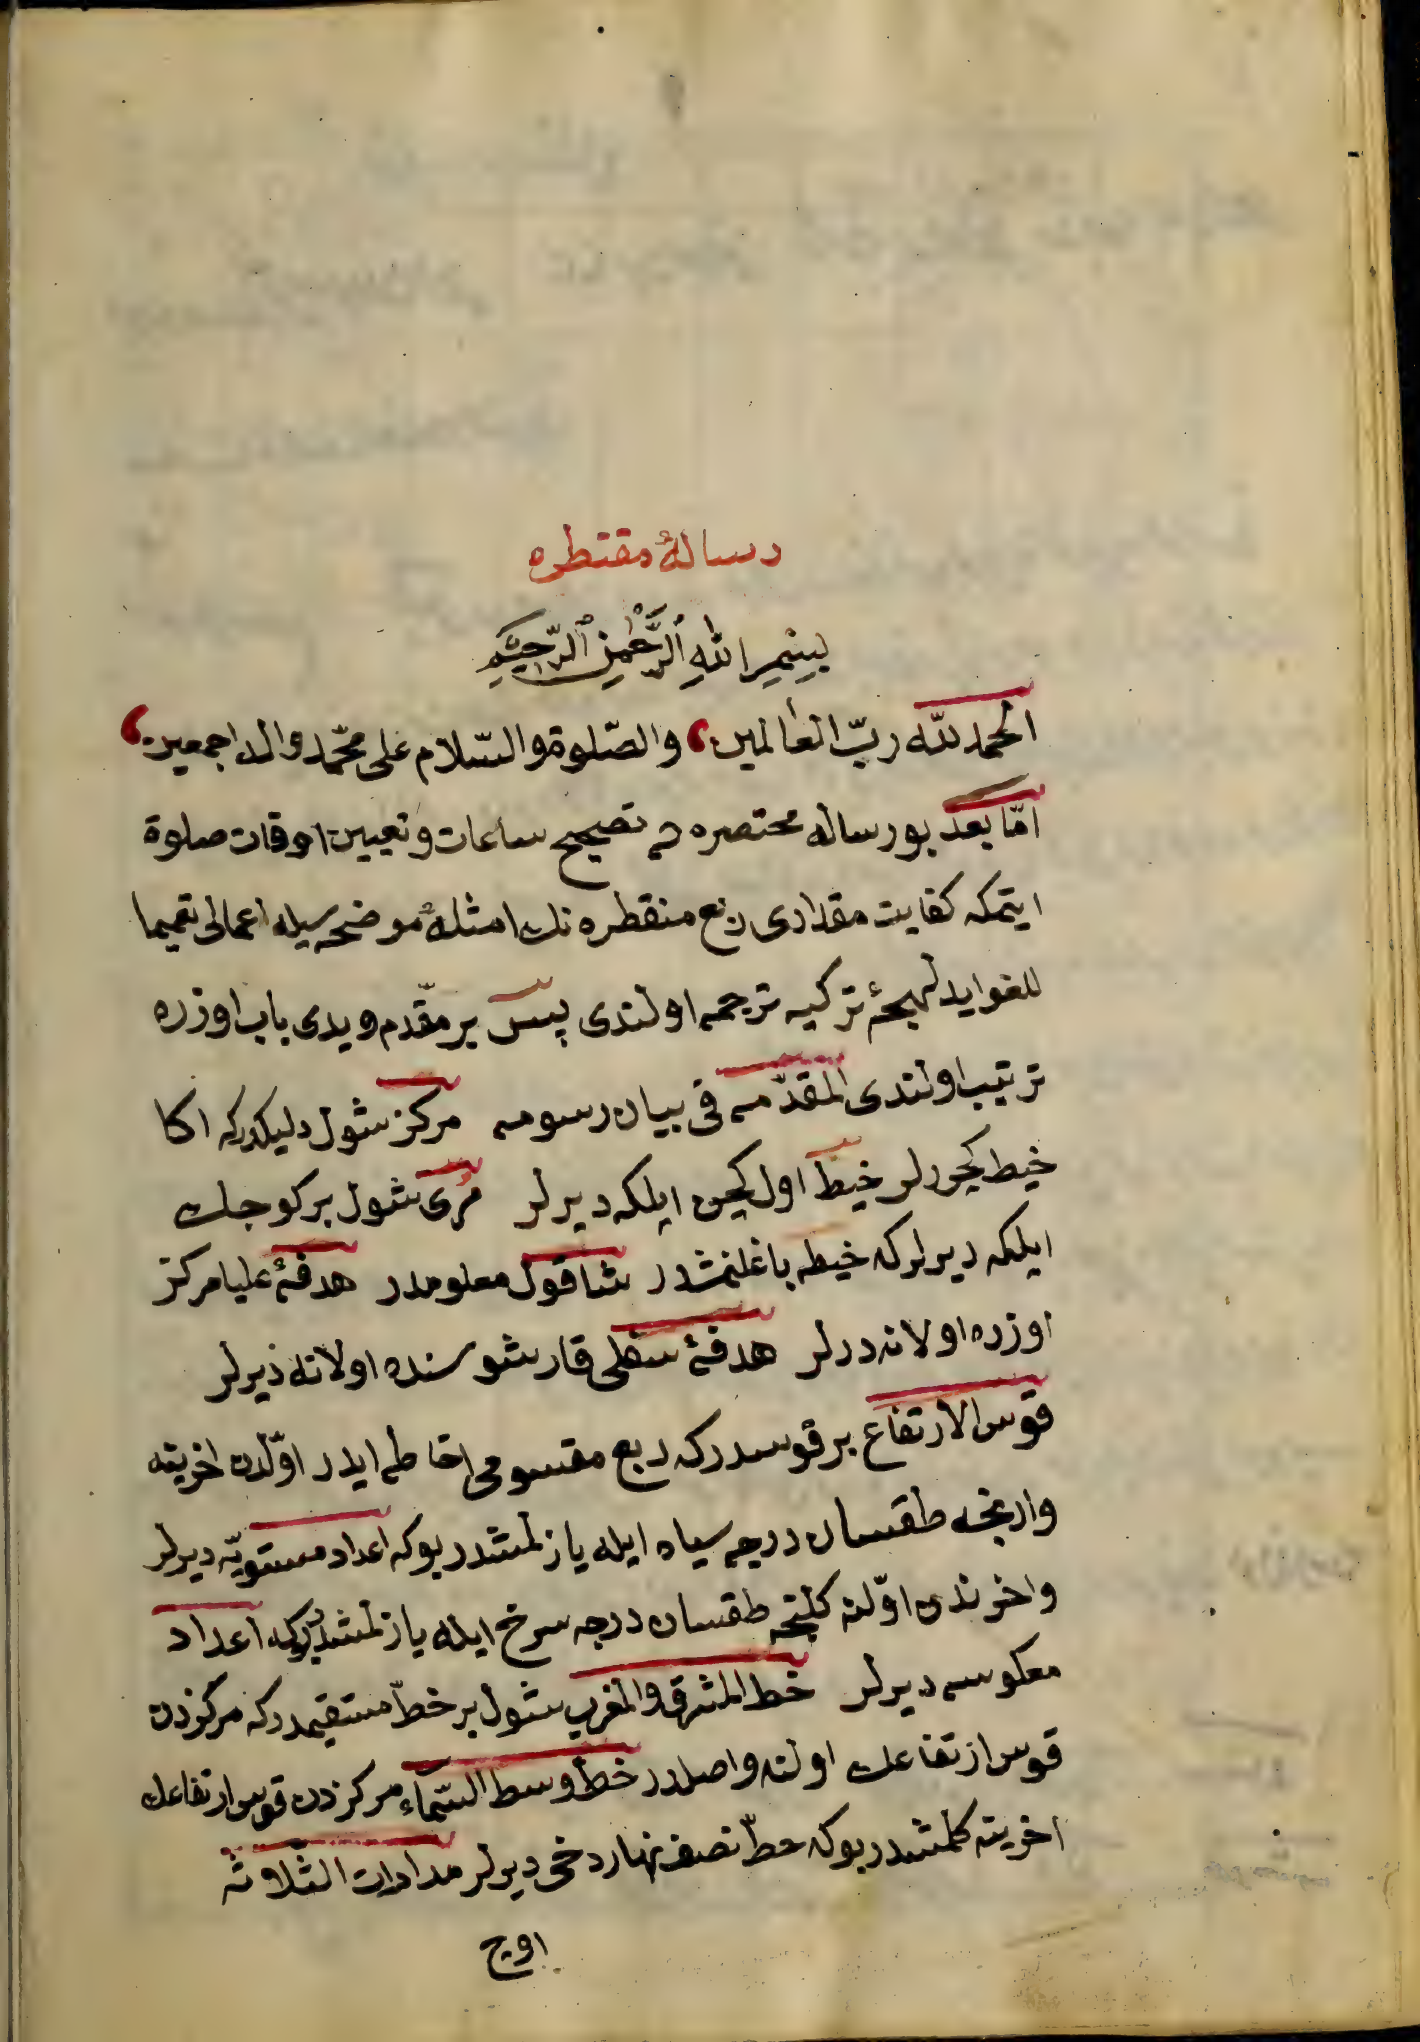 رسالهٔ مقنطره
بِسْمِ اللهِ الرَّحْمٰنِ الرَّحِيمِ
الحمد للّه ربّ العالمين، والصّلوة والسّلام على محمّد واله اجمعين،
امّا بعد بو رساله مختصره ده تصحيح ساعات وتعيين اوقات صلوة
ايتمكه كفايت مقدارى ربع منقطره نك امثلهٔ موضحه سيله اعمالى تعميما
للفوايد لهجهٔ تركيه ترجمه اولندى پس بر مقّدم ويدى باب اوزره
ترتيب اولندى المقدّمه فى بيان رسومه مركز شول دليكدركه اكا
خيط كچوررلر خيط اول كچن ايلكه ديرلر مُرى شول بر كوجك
ايلكه ديرلركه خيطه باغلنمشدر شاقول معلومدر هدفهٔ عليا مركز
اوزره اولانه درلر هدفهٔ سفلى قارشوسنده اولانه ديرلر
قوس الارتفاع بر قوسدركه ربع مقسومى احاطه ايدر اوّلدن اخرينه
وارنجه طقسان درجه سياه ايله يازلمشدر بوكه اعداد مستويّه ديرلر
واخرندن اوّلنه كلنجه طقسان درجه سرخ ايله يازلمشدر بوكه اعداد
معكوسه ديرلر خط المشرق والمغرب شول بر خطّ مستقيمدركه مركزدن
قوس ارتفاعك اولنه واصلدر خط وسط السّماء مركزدن قوس ارتفاعك
اخرينه كلمشدر بوكه خطّ نصف نهار دخى ديرلر مدارات الثلاثه
اوج